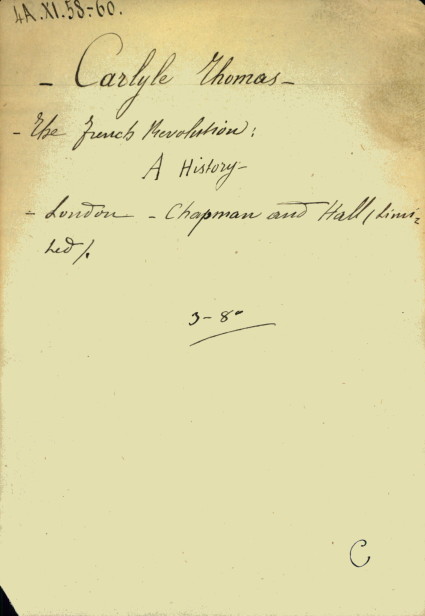 4A.XI.58-60.
- Carlyle Thomas -
- The French Revolution:
A History -
- London - Chapman and Hall (Limi=
ted).
3-8°
C